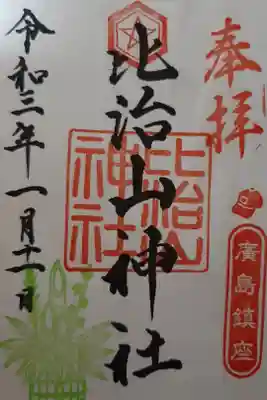 奉拝
廣島鎮座
比治山神社
比治山神社
令和三年一月十一日